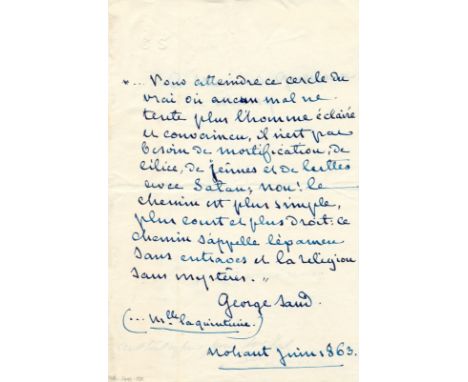 "... Pour atteindre ce cercle du
vrai où aucun mal ne
tente plus l'homme éclairé
et convaincu, il n'est pas
besoin de mortification, de
cilice, de jeûnes et de luttes
avec Satan; non! le
chemin est plus simple,
plus court et plus droit: ce
chemin s'appelle l'examen
sans entraves et la religion
sans mystères. "
George Sand.
(... Mlle La Quintinie.)
Nohant Juin 1863.